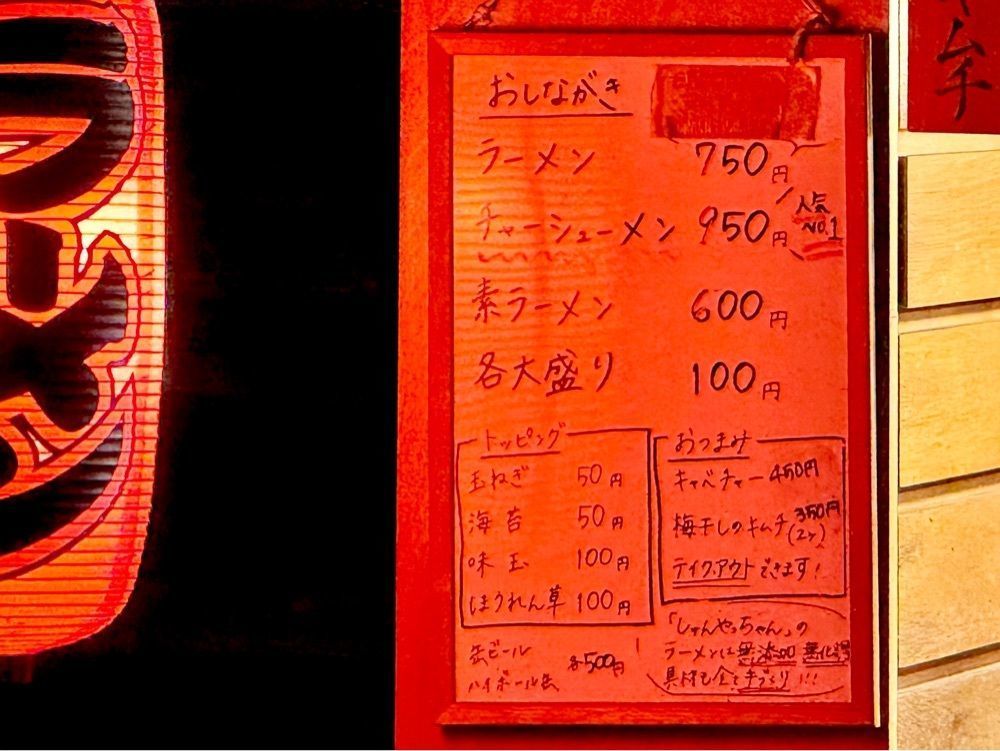 ラーメン
おしながき
ラーメン 750円
チャーシューメン 950円 人気No.1
素ラーメン 600円
各大盛り 100円
トッピング
玉ねぎ 50円
海苔 50円
味玉 100円
ほうれん草 100円
おつまみ
キャベチャー 450円
梅干しのキムチ 350円
(2ヶ)
テイクアウトできます!
缶ビール
ハイボール缶 各500円
「しゅんやっちゃん」の
ラーメンは無添加 無化調
具材も全て手づくり!!!